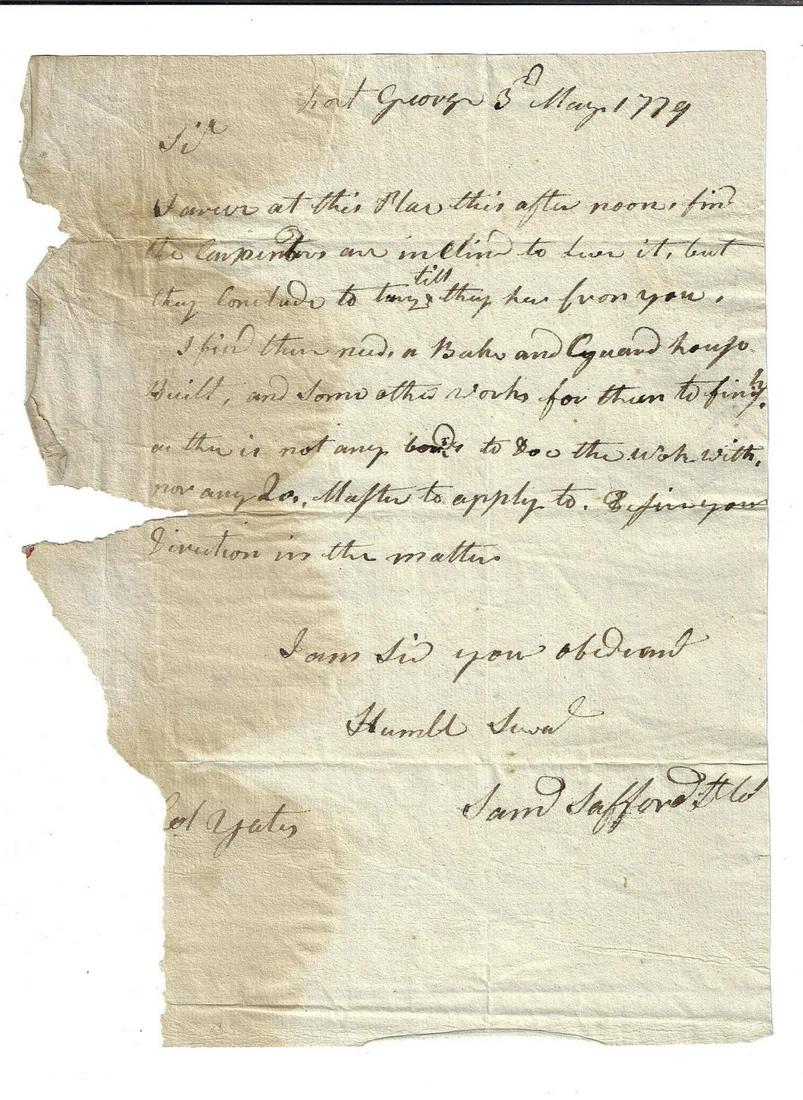 Fort George 3d May 1779
Sir
I arive at this Plase this after noon, find
the Carpenters are inclind to Leve it, but
they Conclude to tary till they her from you,
I find ther needs a Bake and Guard house
Built, and Some other works for them to finish.
as ther is not any bords to Doe the work with,
nor any Qr. Master to apply to. Desire your
Direction in the matter
I am Sir your obediand
Humbl Serva
Saml Safford Lt Col
Col Yates